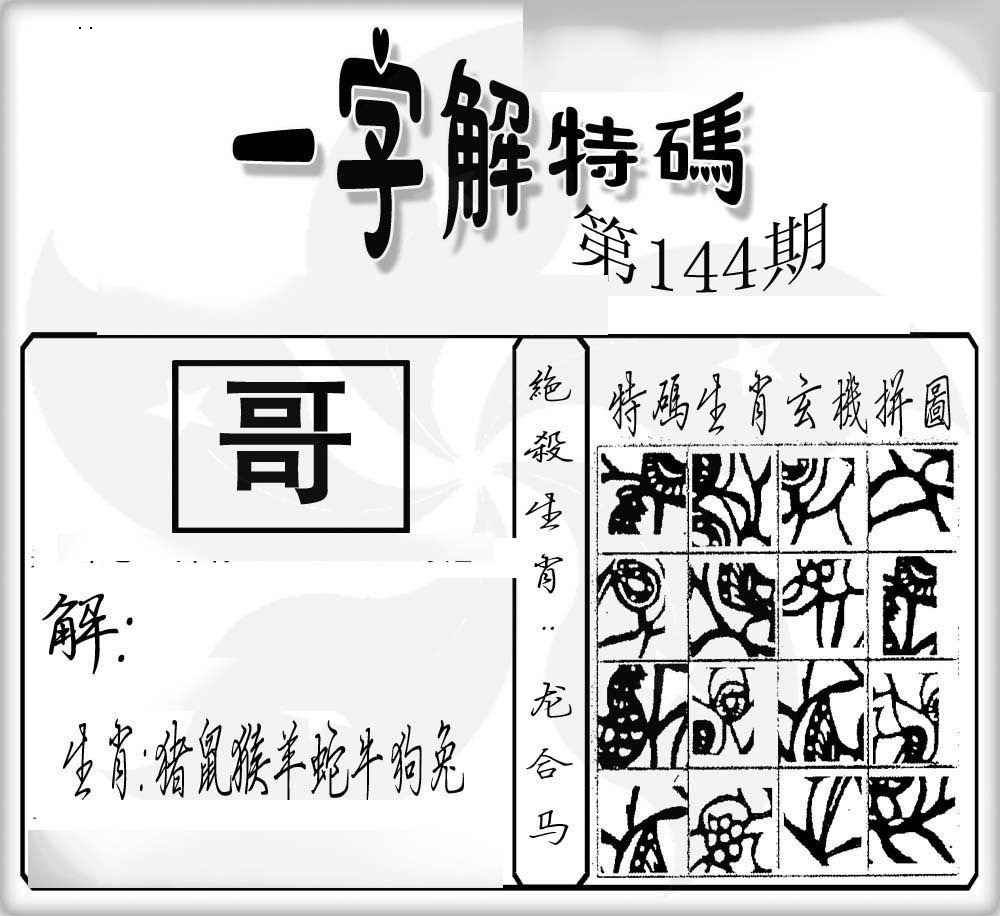 一字解特碼
第144期
哥
解:
生肖:猪鼠猴羊蛇牛狗兔
絶殺生肖:龙合马
特碼生肖玄機拼圖